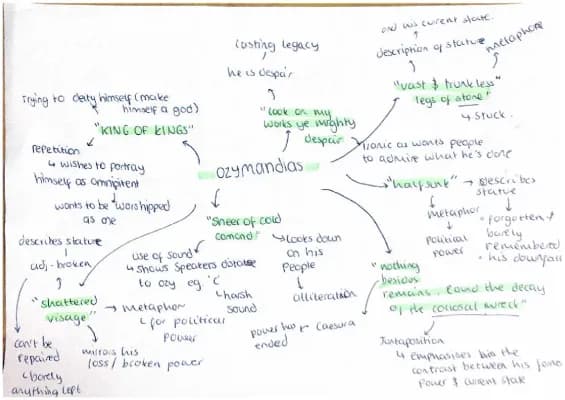 lasting legacy
he is despair
"look on my
works ye mighty
despair
ironic as wants people
to admire what he's done
and his current state.
description of statue
metaphor
"vast & trunkless
legs of stone"
↳ stuck.
Trying to deify himself (make
himself a god)
"KING OF KINGS"
repetition
↳ wishes to portray
himself as omnipitent
wants to be worshipped
as one
OZYMANDIAS
"half sunk" → describes
statue
metaphor
political
power
• forgotten &
barely
remembered
• his downfall
"Sneer of cold
comand"
use of sound
↳ shows speakers
to ozy eg. 'C'
↳ harsh
sound
↳ Looks down
on his
People
alliteration
describes statue
adj - broken
"shattered
visage"
→ metaphor
↳ for political
power
can't be
repaired
↳ barely
anything left
mirrors his
loss / broken power
"nothing
besides
remains. round the decay
of the colossal wreck"
Caesura
power has
ended
Juxtaposition
↳ emphasises the
contrast between his
power & current state